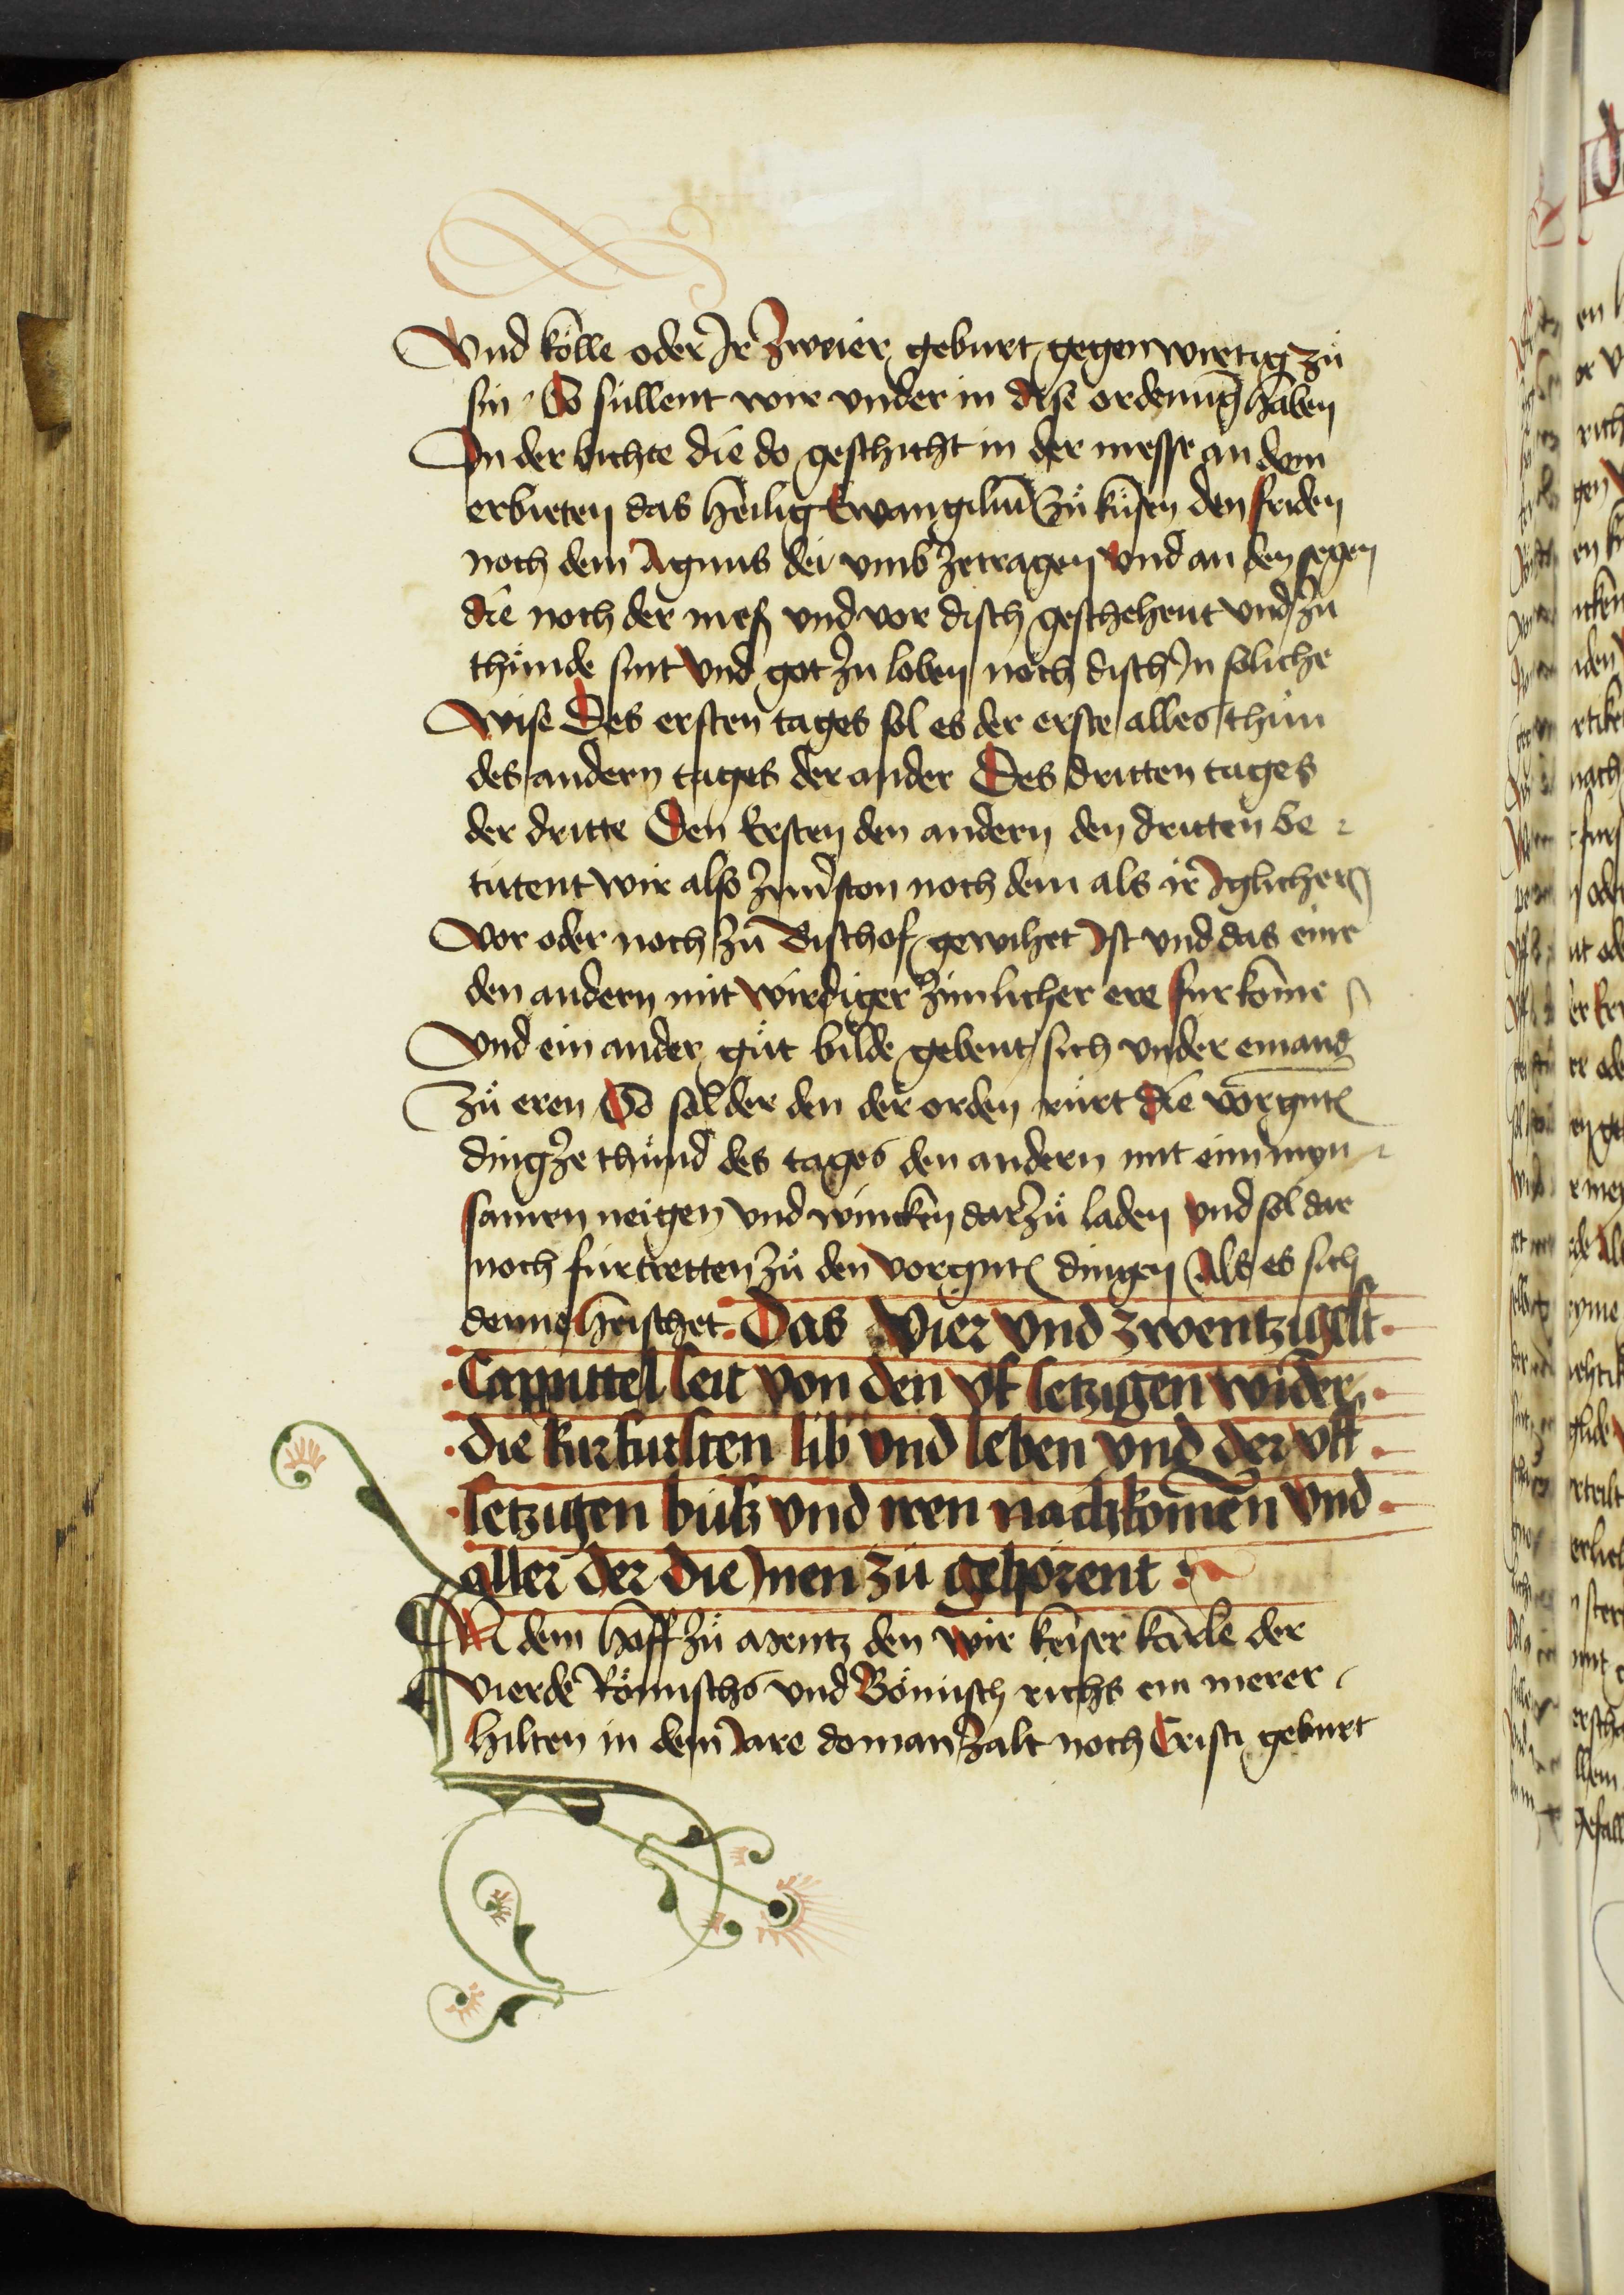 Vnd kölle oder Ir Zweier geburt gegenwirtig zů
sin So sullent wir vnder in dise ordenūg haben
In der bichte die do geschicht in der messe an dem
erbieten das heilig Ewangiliū Zů kůsen den friden
noch dem Agnus dei vmb zetragen vnd an den segen
die noch der mess vnd vor disch geschehent vnd zu
thůnde sint Vnd got zu loben noch disch In soliche
Wise Des ersten tages sol es der erste alles thůn
des andern tages der ander Des dritten tages
der dritte Den Ersten den andern den dritten be
tutent wir also noch dem als ir Iglicher
Vor oder noch zů Bischof gewihet Ist vnd das eine
den andern mit wirdiger zimlicher ere furkōme
Vnd ein ander gůt bilde gebent sich vnder einand
Zů eren So sol der den der orden růrt die vorgnte
ding ze thůnd des tages den andern mit eim myn
samen neigen vnd wincken dar zů laden vnd sol dar
noch fůr tretten zů den vorgnte dingen Als es sich
denne heischet Das Vier vnd zwentzigest
Cappittel seit von den vf setzigen wider
die kurfursten lib vnd leben vnd der vff
setzigen bůsz vnd iren nachkōmen vnd
aller der die Inen zů gehörent
In dem hoff zů Mentz den wir keiser karle der
Vierde Römischs vnd Bömisch richs ein merer
hilten in dem Iare do man zalt noch Cristi geburt